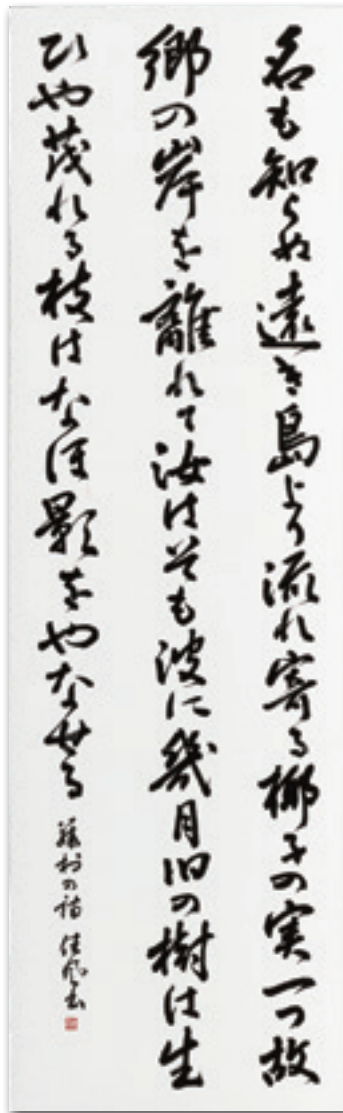 名も知らぬ遠き島より流れ寄る椰子の実一つ故
郷の岸を離れて汝はそも波に幾月旧の樹は生
ひや茂れる枝はなほ影をやなせる
藤村の詩 書